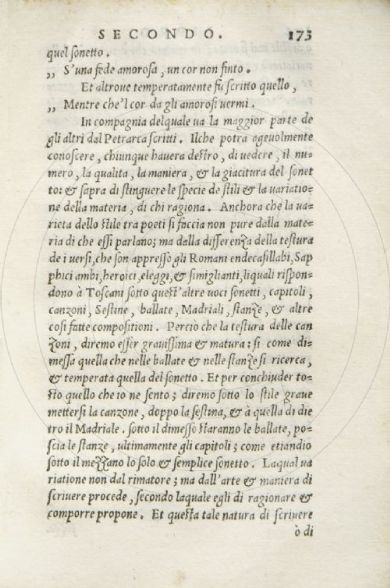 SECONDO. 173
quel sonetto.
„ S'una fede amorosa, un cor non finto.
Et altroue temperatamente fu scritto quello,
„ Mentre che'l cor da gli amorosi uermi.
In compagnia delquale ua la maggior parte de
gli altri dal Petrarca scritti. Ilche potrà ageuolmente
conoscere, chiunque hauera destro, di uedere, il nu=
mero, la qualita, la maniera, & la giacitura del sonet
to: & sapra di stinguere le specie de stili & la uariatio=
ne della materia, di chi ragiona. Anchora che la ua=
rieta dello stile tra poeti si faccia non pure dalla mate=
ria di che essi parlano; ma dalla differenza della testura
de i uersi, che son appresso gli Romani endecasillabi, Sap
phici ambi, heroici, eleggi, & simiglianti, liquali rispon=
dono à Toscani sotto quest'altre uoci sonetti, capitoli,
canzoni, Sestine, ballate, Madriali, stanze, & altre
cosi fatte compositioni. Perciò che la testura delle can
zoni, diremo esser grauissima & matura: si come di=
messa quella che nelle ballate & nelle stanze si ricerca,
& temperata quella del sonetto. Et per conchiuder to=
sto quello che io ne sento; diremo sotto lo stile graue
mettersi la canzone, doppo la sestina, & à quella di die
tro il Madriale. sotto il dimesso staranno le ballate, po=
scia le stanze, ultimamente gli capitoli; come etiandio
sotto il mezzano lo solo & semplice sonetto. Laqual ua
riatione non dal rimatore; ma dall'arte & maniera di
scriuere procede, secondo laquale egli di ragionare &
comporre propone. Et questa tale natura di scriuere
ò di